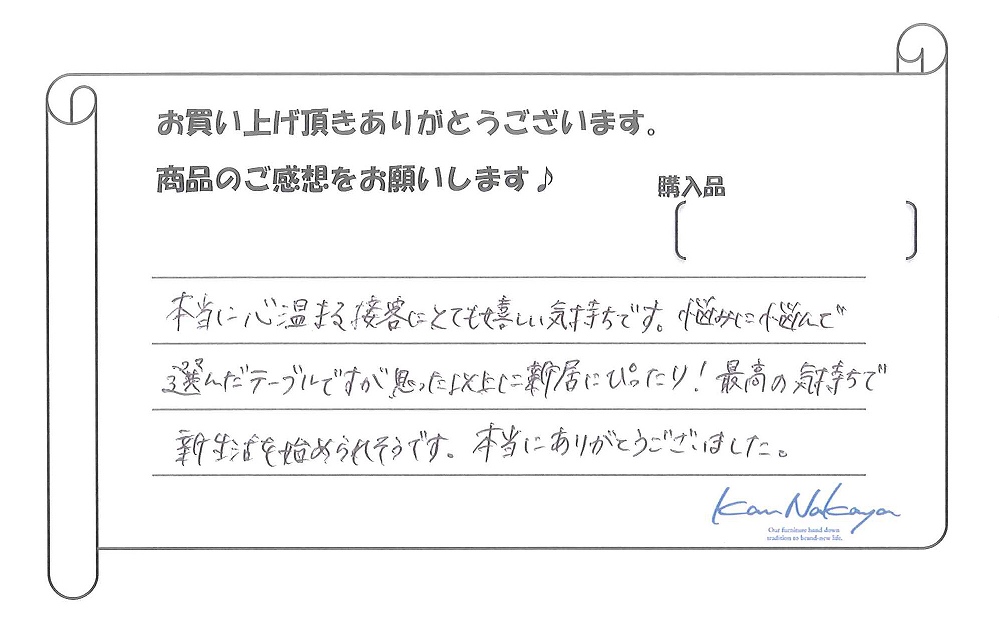 お買い上げ頂きありがとうございます。
商品のご感想をお願いします♪
購入品
本当に心温まる接客にとても嬉しい気持ちです。悩みに悩んで
選んだテーブルですが思った以上に新居にぴったり！最高の気持ちで
新生活を始められそうです。本当にありがとうございました。
Kan Nakaya
Our furniture hand down
tradition to brand-new life.